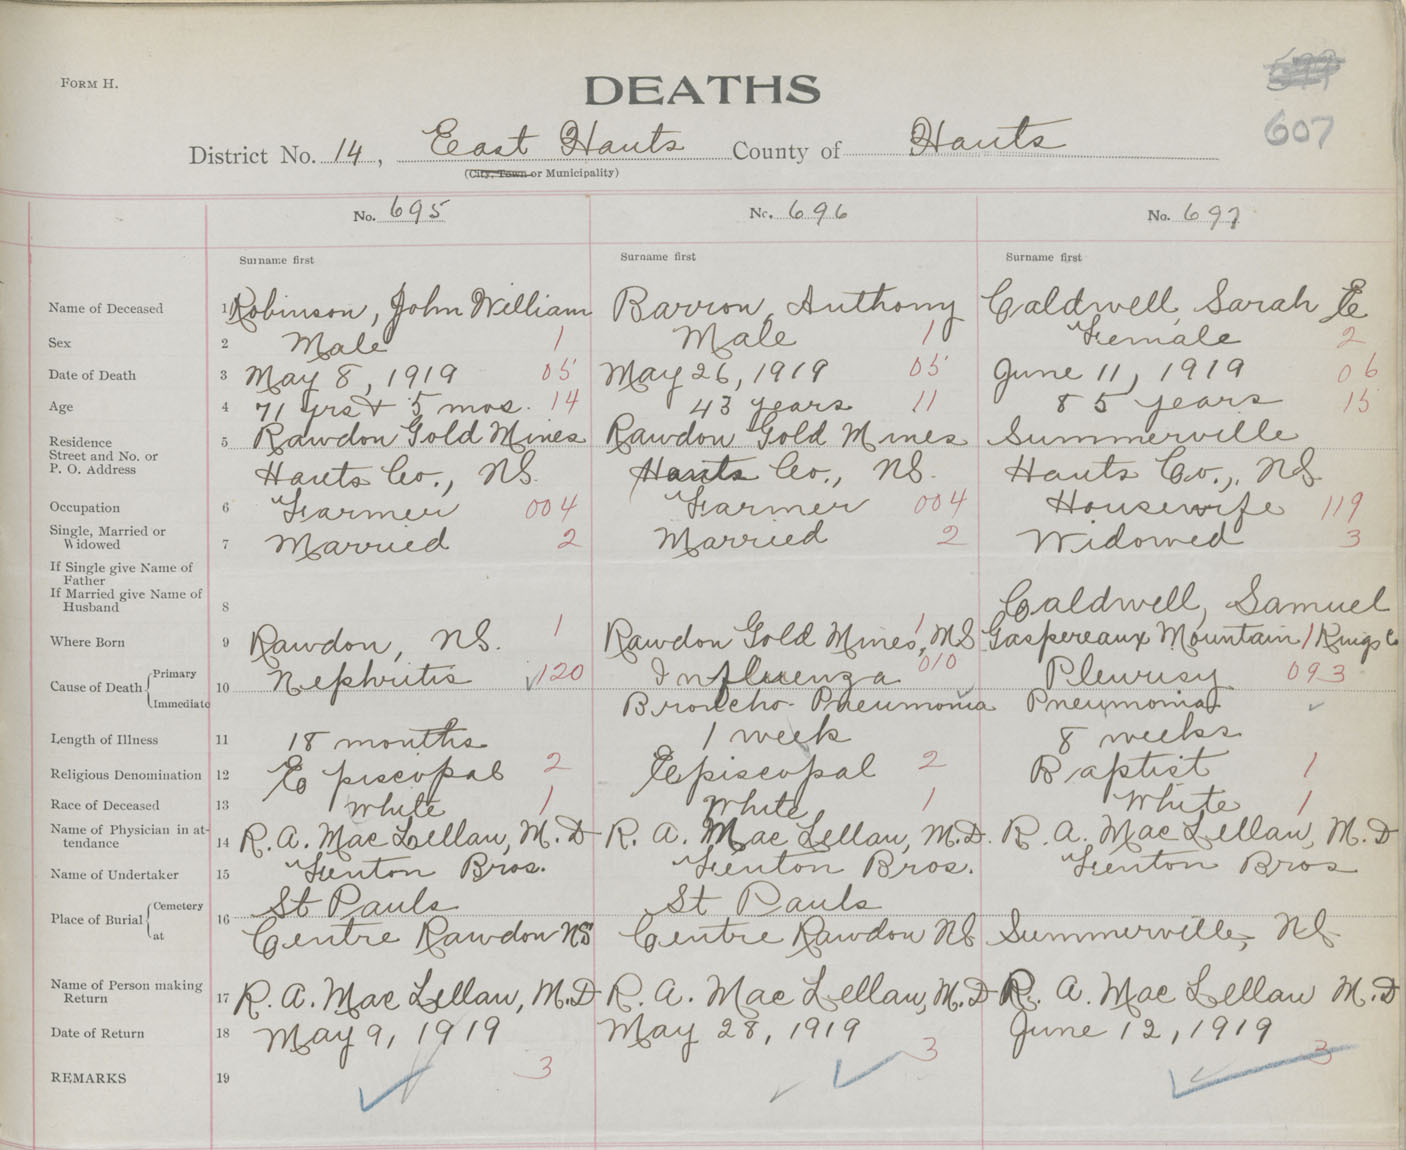 FORM H.
DEATHS
607
District No. 14, East Hants County of Hants
(City, Town or Municipality)
No. 695 No. 696 No. 697
Surname first Surname first Surname first
Name of Deceased 1 Robinson, John William Barron, Anthony Caldwell, Sarah E
Sex 2 Male 1 Male 1 Female 2
Date of Death 3 May 8, 1919 05 May 26, 1919 05 June 11, 1919 06
Age 4 71 yrs + 5 mos. 14 43 years 11 85 years 15
Residence 5 Rawdon Gold Mines Rawdon Gold Mines Summerville
Street and No. or
P. O. Address Hants Co., NS. Hants Co., NS. Hants Co., NS
Occupation 6 Farmer 004 Farmer 004 Housewife 119
Single, Married or
Widowed 7 Married 2 Married 2 Widowed 3
If Single give Name of
Father
If Married give Name of
Husband 8 Caldwell, Samuel
Where Born 9 Rawdon, NS. 1 Rawdon Gold Mines, NS 1 Gaspereaux Mountain 1 Kings Co
Cause of Death Primary 10 Nephritis 120 Influenza 010 Pleurisy 093
Immediate Broncho-Pneumonia Pneumonia
Length of Illness 11 18 months 1 week 8 weeks
Religious Denomination 12 Episcopal 2 Episcopal 2 Baptist 1
Race of Deceased 13 White 1 White 1 White 1
Name of Physician in at-
tendance 14 R. A. MacLellan, M.D R. A. MacLellan, M.D. R. A. MacLellan, M.D
Name of Undertaker 15 Fenton Bros. Fenton Bros. Fenton Bros
Place of Burial Cemetery 16 St Pauls St Pauls
at Centre Rawdon NS Centre Rawdon NS Summerville, NS.
Name of Person making
Return 17 R. A. MacLellan, M.D R. A. MacLellan, M.D R. A. MacLellan M.D
Date of Return 18 May 9, 1919 May 28, 1919 June 12, 1919
3 3 3
REMARKS 19